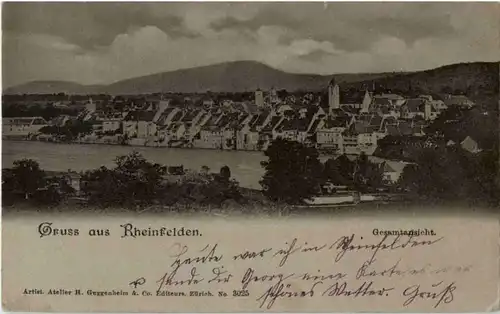 Gruss aus Rheinfelden.
Gesamtansicht.
Heute war ich in Rheinfelden,
sende dir Georg eine Karte
schönes Wetter. Gruß
Artist. Atelier H. Guggenheim & Co. Editeurs. Zürich. No 3025